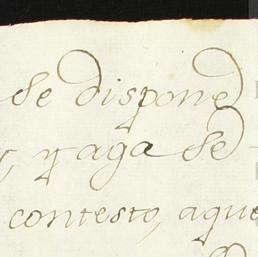 se dispone
, y aga se
contesto, aque